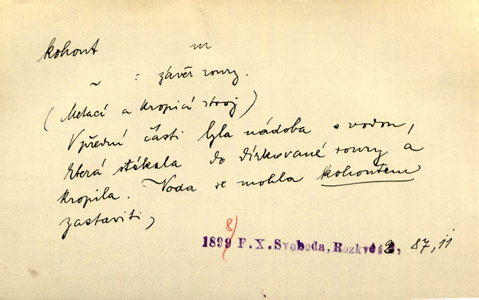 kohout m
~ : závěr roury.
(Metací a kropicí stroj)
V přední části byla nádoba s vodou,
která stékala do dírkované roury a
kropila. Voda se mohla kohoutem
zastaviti,
8)
1899 F. X. Svoboda, Rozkvět 2, 87, 11